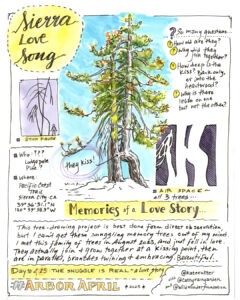 Sierra
Love
Song
So many questions...
① How old are they?
② Why did they
join together?
③ How deep is the
kiss? Bark only,
or into the
heartwood?
④ Why is there
on one
but not the other?
STICK FIGURE
Who - ???
Pine
Where
Pacific Crest
Trail
Sierra City, CA
they kiss!
AIR SPACE
all 3 trees
Memories of a Love Story...
This tree-drawing project is best done from direct observation,
but I can't get these snuggling memory trees out of my mind.
I met this family of trees in August 2023, and just fell in love.
They actually join & grow together at a kissing point, then
are in parallel, branches twining & embracing. Beautiful.
Day 2/25 THE SNUGGLE IS REAL - a love story
#ARBOR APRIL